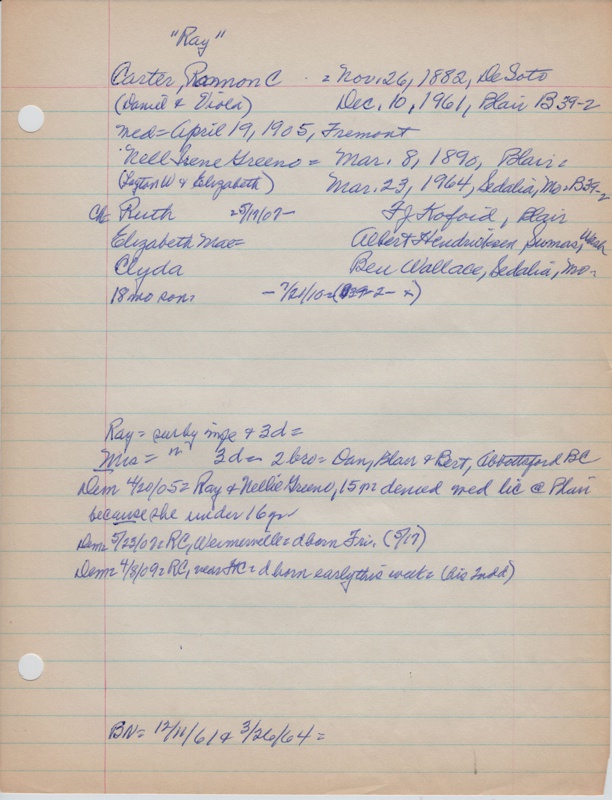 "Ray"
Carter, Ramon C = Nov. 26, 1882, DeSoto
(Daniel & Viola) Dec. 10, 1961, Blair B39-2
med = April 19, 1905, Fremont
Nell Irene Greeno = Mar. 8, 1890, Blair =
(Layton W & Elizabeth) Mar. 23, 1964, Sedalia, Mo. B39-2
Ch Ruth =5/17/07- Kofoid, Blair
Elizabeth Mae= Albert Hendricksen, Sumas, Wash
Clyda Ben Wallace, Sedalia, Mo-
18 mo son= -7/21/10= 39-2-x)
Ray = sur by & 3d =
Mrs = " 3d = 2 bro = Dan, Blair & Bert, Abbottsford BC
Dem 4/20/05 = Ray & Nellie Greeno, 15 denied med lic @ Blair
because she under 16 yr
Dem = 5/23/07 = RC, = d born Fri. (5/17)
Dem = 4/8/09 = RC, near = d born early this week = (his 2nd d)
BN = 12/11/61 & 3/26/64 =